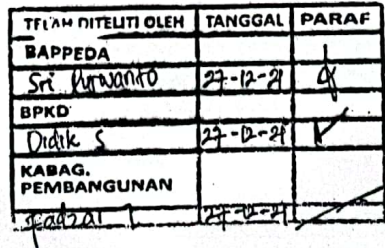 TELAH DITELITI OLEH TANGGAL PARAF
BAPPEDA
Sri Purwanto 27-12-21
BPKD
Didik S 27-12-21
KABAG.
PEMBANGUNAN
27-12-21